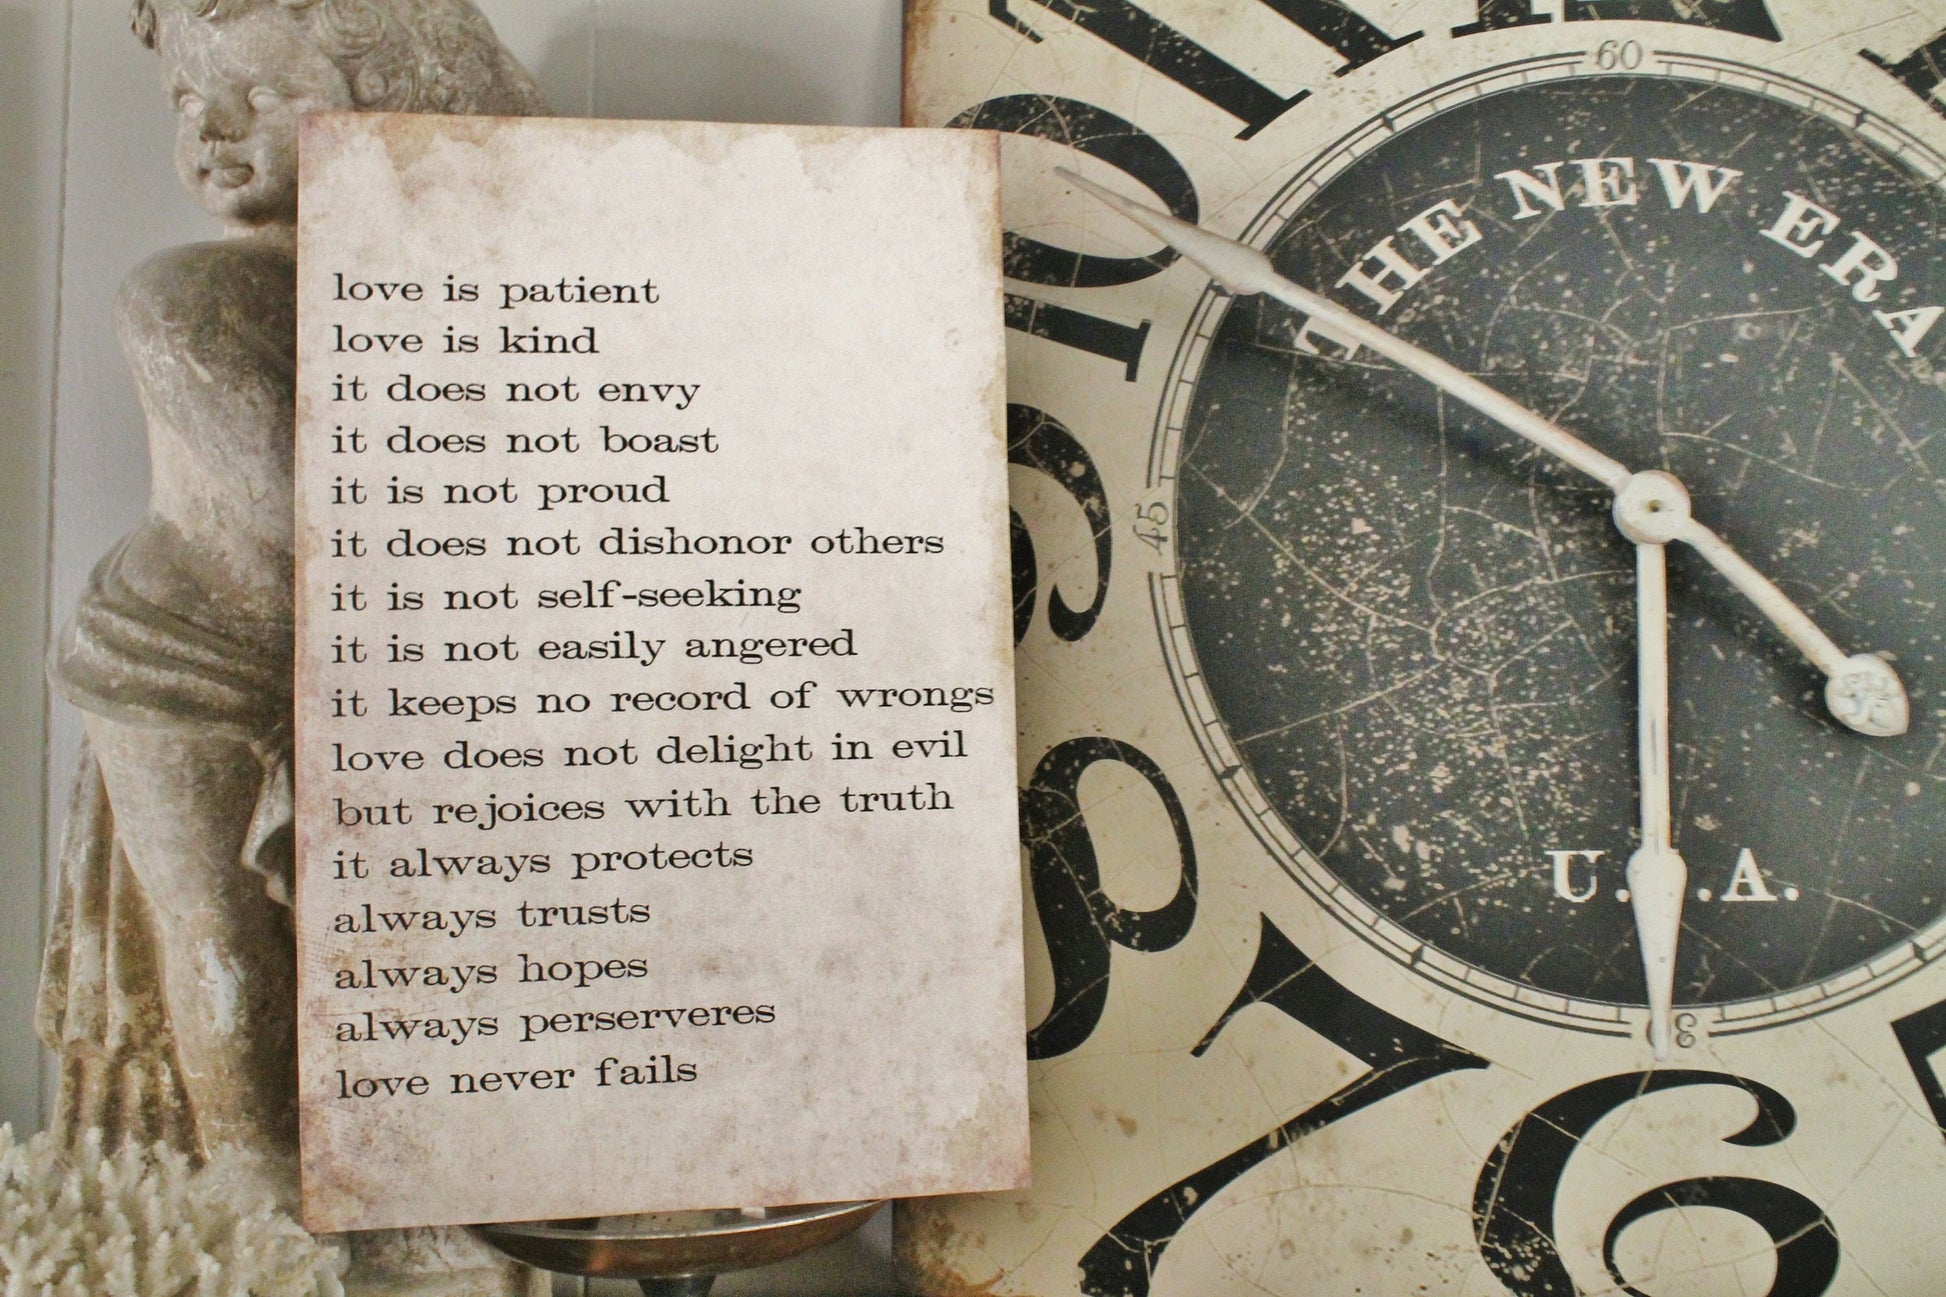 love is patient
love is kind
it does not envy
it does not boast
it is not proud
it does not dishonor others
it is not self-seeking
it is not easily angered
it keeps no record of wrongs
love does not delight in evil
but rejoices with the truth
it always protects
always trusts
always hopes
always perserveres
love never fails
60
THE NEW ERA
10
45
9
8
U. .A.
30
7
6